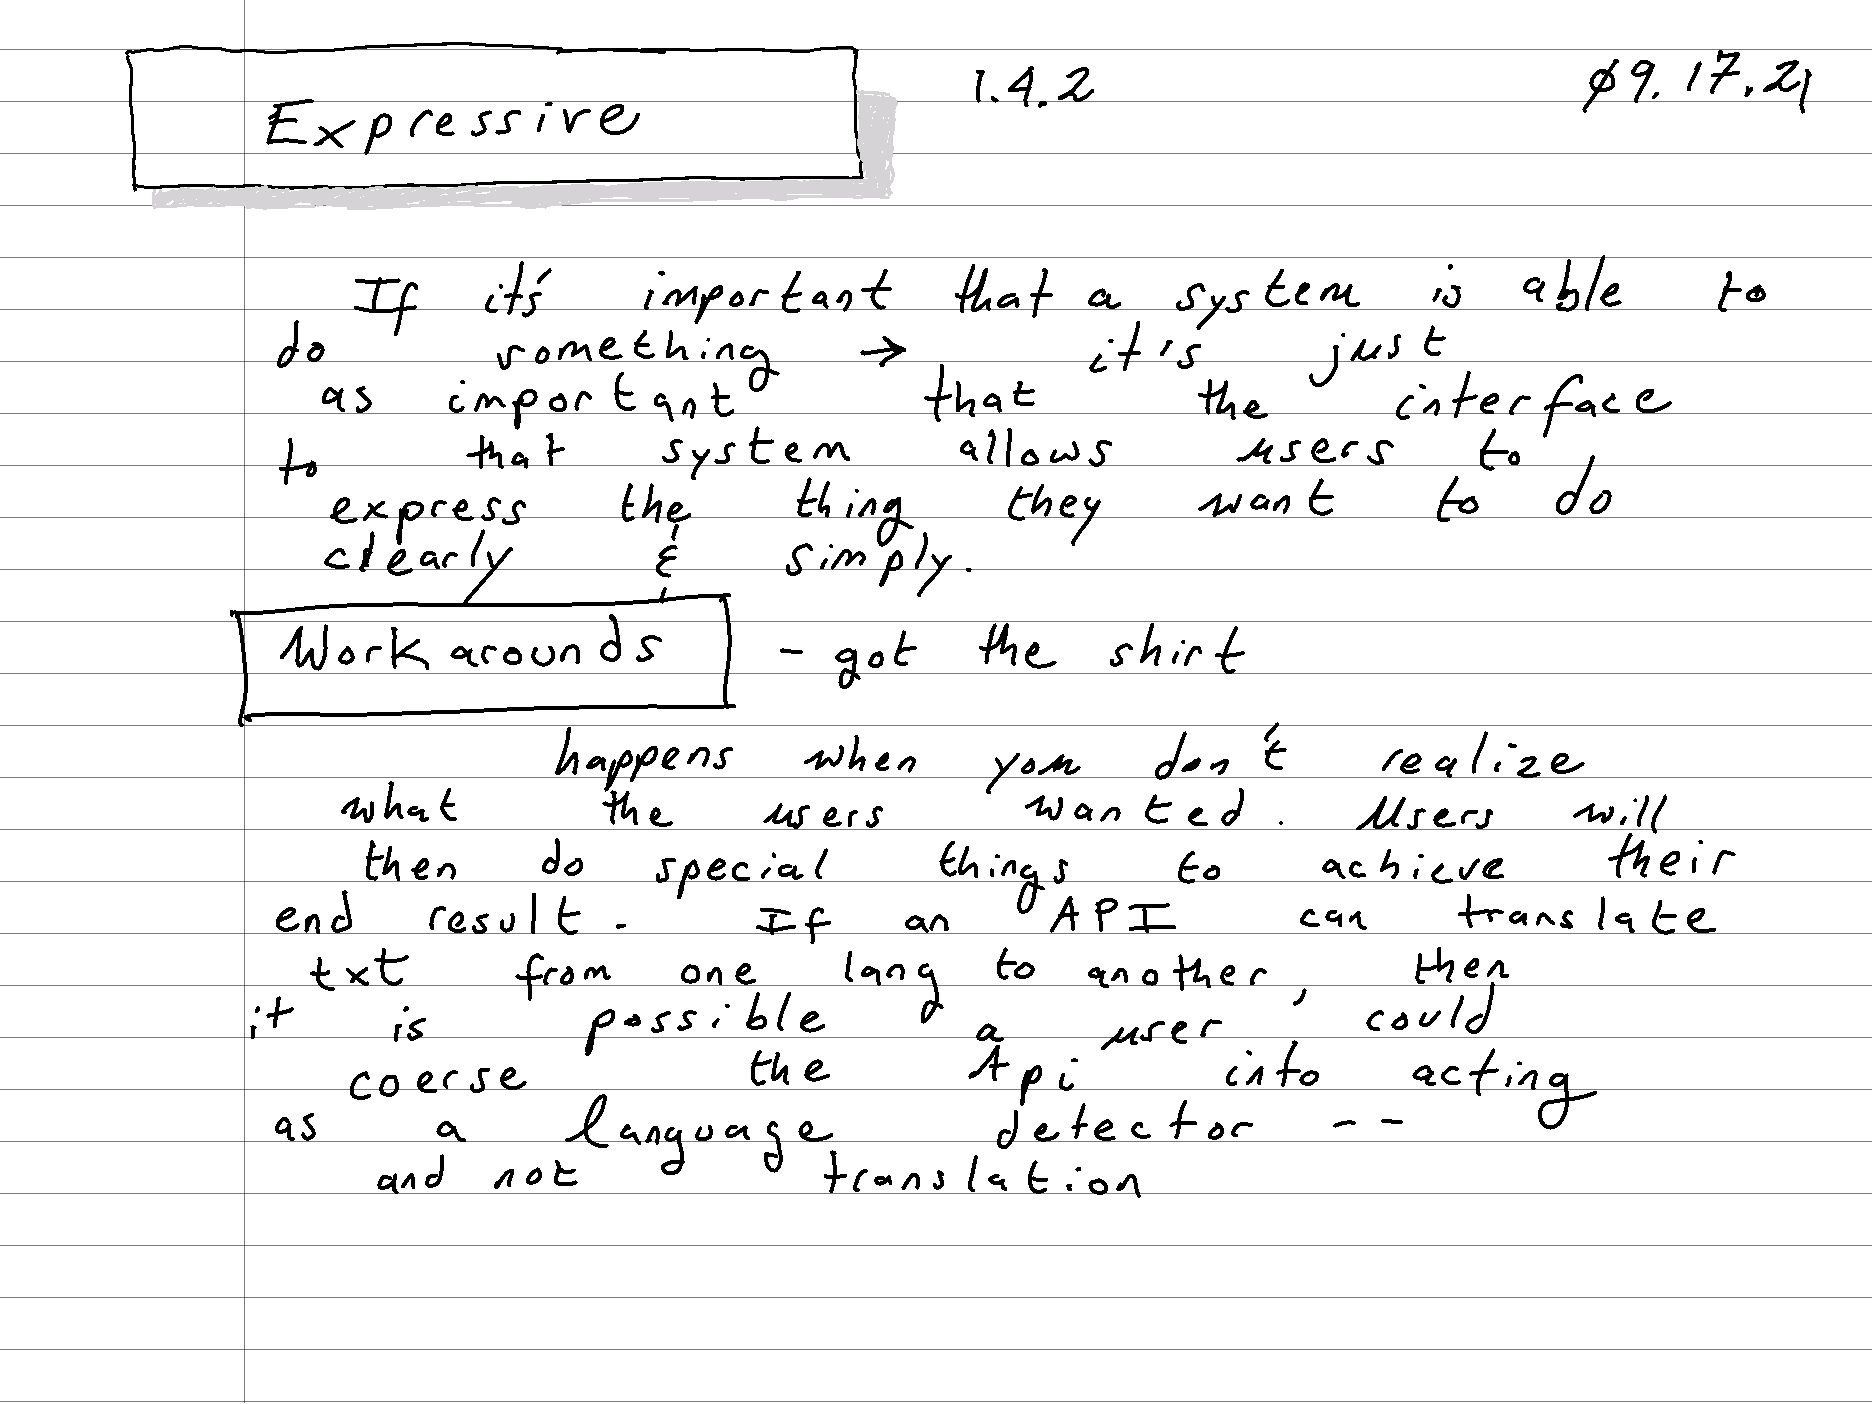 Expressive 1.4.2 ø9.17.21
If it's important that a system is able to
do something → it's just
as important that the interface
to that system allows users to
express the thing they want to do
clearly & simply.
Workarounds - got the shirt
happens when you don't realize
what the users wanted. Users will
then do special things to achieve their
end result. If an API can translate
txt from one lang to another, then
it is possible a user could
coerse the Api into acting
as a language detector --
and not translation